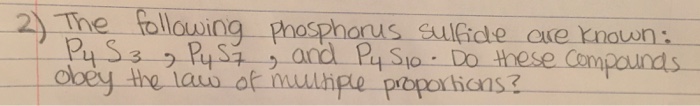 2) The following phosphorus sulfide are known:
P4 S3 , P4 S7 , and P4 S10. Do these compounds
obey the law of multiple proportions?